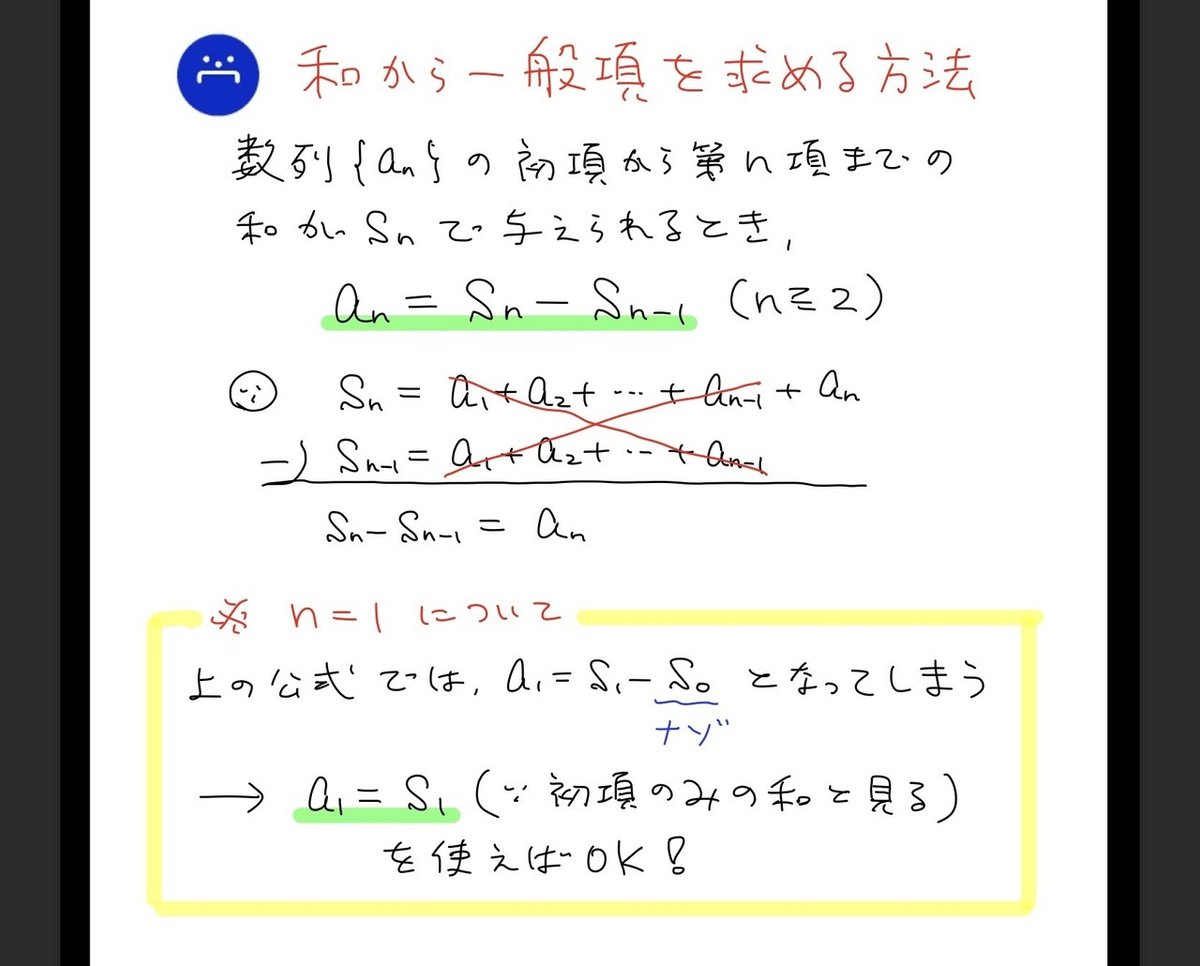 和から一般項を求める方法
数列{an}の初項から第n項までの
和がSnで与えられるとき,
an = Sn − Sn−1 (n≧2)
∵ Sn = a1+a2+ … + an−1 + an
−) Sn−1 = a1+a2+ … + an−1
Sn − Sn−1 = an
※ n=1 について
上の公式では, a1 = S1 − S0 となってしまう
ナゾ
→ a1 = S1 (∵ 初項のみの和と見る)
を使えばOK!